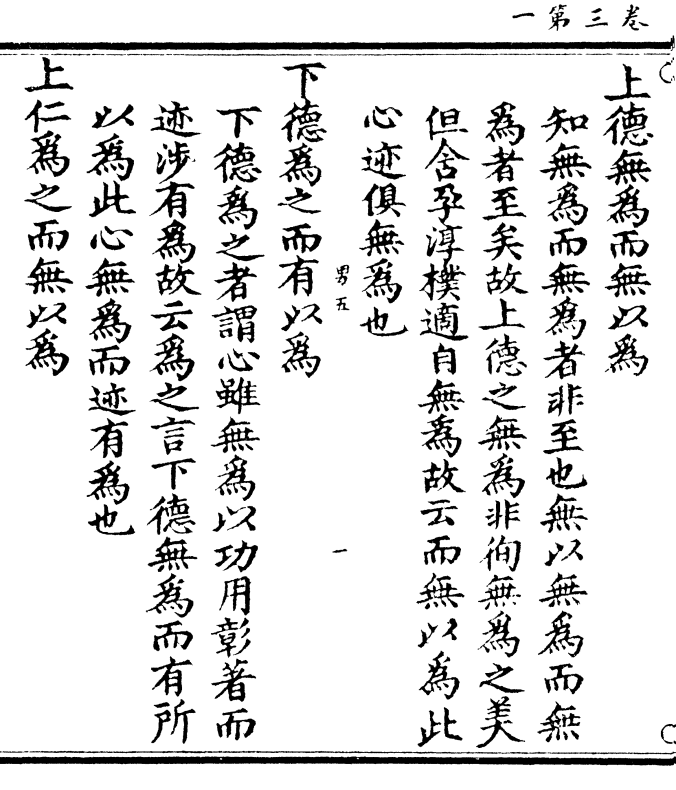 一第三卷
上德無為而無以為
知無為而無為者非至也無以無為而無
為者至矣故上德之無為非徇無為之美
但含孕淳樸適自無為故云而無以為此
心迹俱無為也
男五
一
下德為之而有以為
下德為之者謂心雖無為以功用彰著而
迹涉有為故云為之言下德無為而有所
以為此心無為而迹有為也
上仁為之而無以為